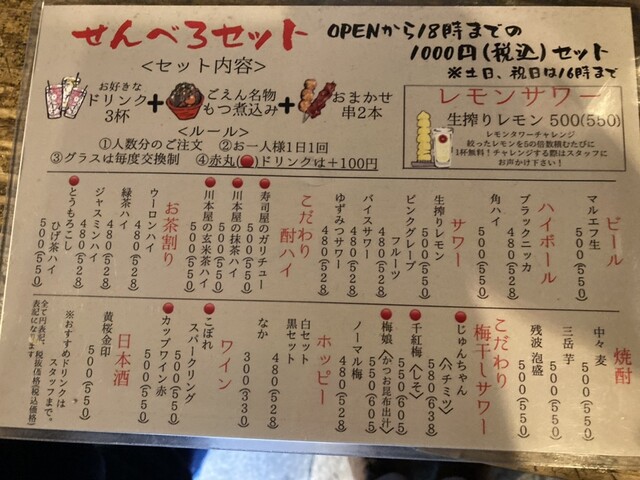 せんべろセット
OPENから18時までの
1000円(税込)セット
※土日、祝日は16時まで
<セット内容>
お好きな
ドリンク
3杯
+
ごえん名物
もつ煮込み
+
おまかせ
串2本
<ルール>
①人数分のご注文 ②お一人様1日1回
③グラスは毎度交換制 ④赤丸(●)ドリンクは+100円
レモンサワー
生搾りレモン 500(550)
レモンタワーチャレンジ
絞ったレモンを5の倍数積むたびに
1杯無料!チャレンジする際はスタッフに
お声かけ下さい!
ビール
マルエフ生
500(550)
ハイボール
ブラックニッカ
500(550)
角ハイ
500(550)
サワー
生搾りレモン
500(550)
ピンクグレープ
フルーツ
480(528)
バイスサワー
480(528)
ゆずみつサワー
480(528)
こだわり
酎ハイ
●寿司屋のガリチュー
500(550)
●川本屋の抹茶ハイ
500(550)
●川本屋の玄米茶ハイ
500(550)
お茶割り
ウーロンハイ
480(528)
緑茶ハイ
480(528)
ジャスミンハイ
480(528)
●とうもろこし
ひげ茶ハイ
500(550)
焼酎
中々 麦
500(550)
三岳 芋
500(550)
残波 泡盛
500(550)
こだわり
梅干しサワー
●じゅんちゃん
(ハチミツ)
580(638)
●千紅梅(しそ)
550(605)
●梅娘(かつお昆布出汁)
550(605)
ノーマル梅
480(528)
ホッピー
白セット
黒セット
480(528)
なか
300(330)
ワイン
●こぼれ
スパークリング
500(550)
●カップワイン赤
500(550)
日本酒
黄桜金印
500(550)
※おすすめドリンクは
スタッフまで。
全て円表記、税抜価格(税込価格)
表記になります